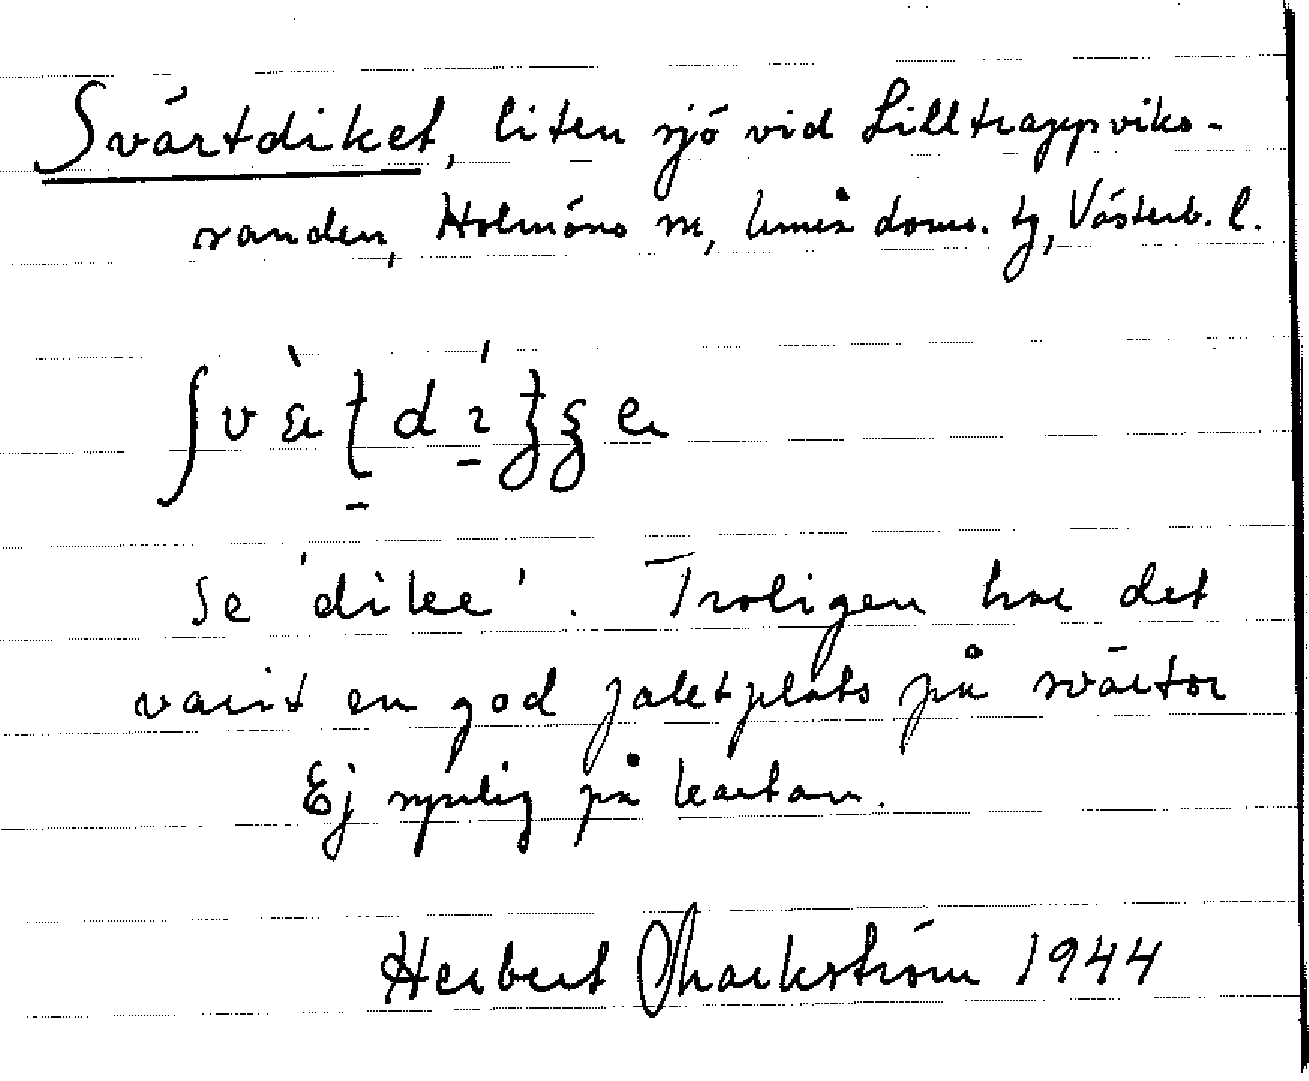 Svärtdiket, liten sjö vid Lilltrappviks-
randen, Holmöns sn, Umeå doms. tg, Västerb. l.
se 'dike'. Troligen har det
varit en god jaktplats på svärtor
Ej synlig på kartan.
Herbert Markström 1944